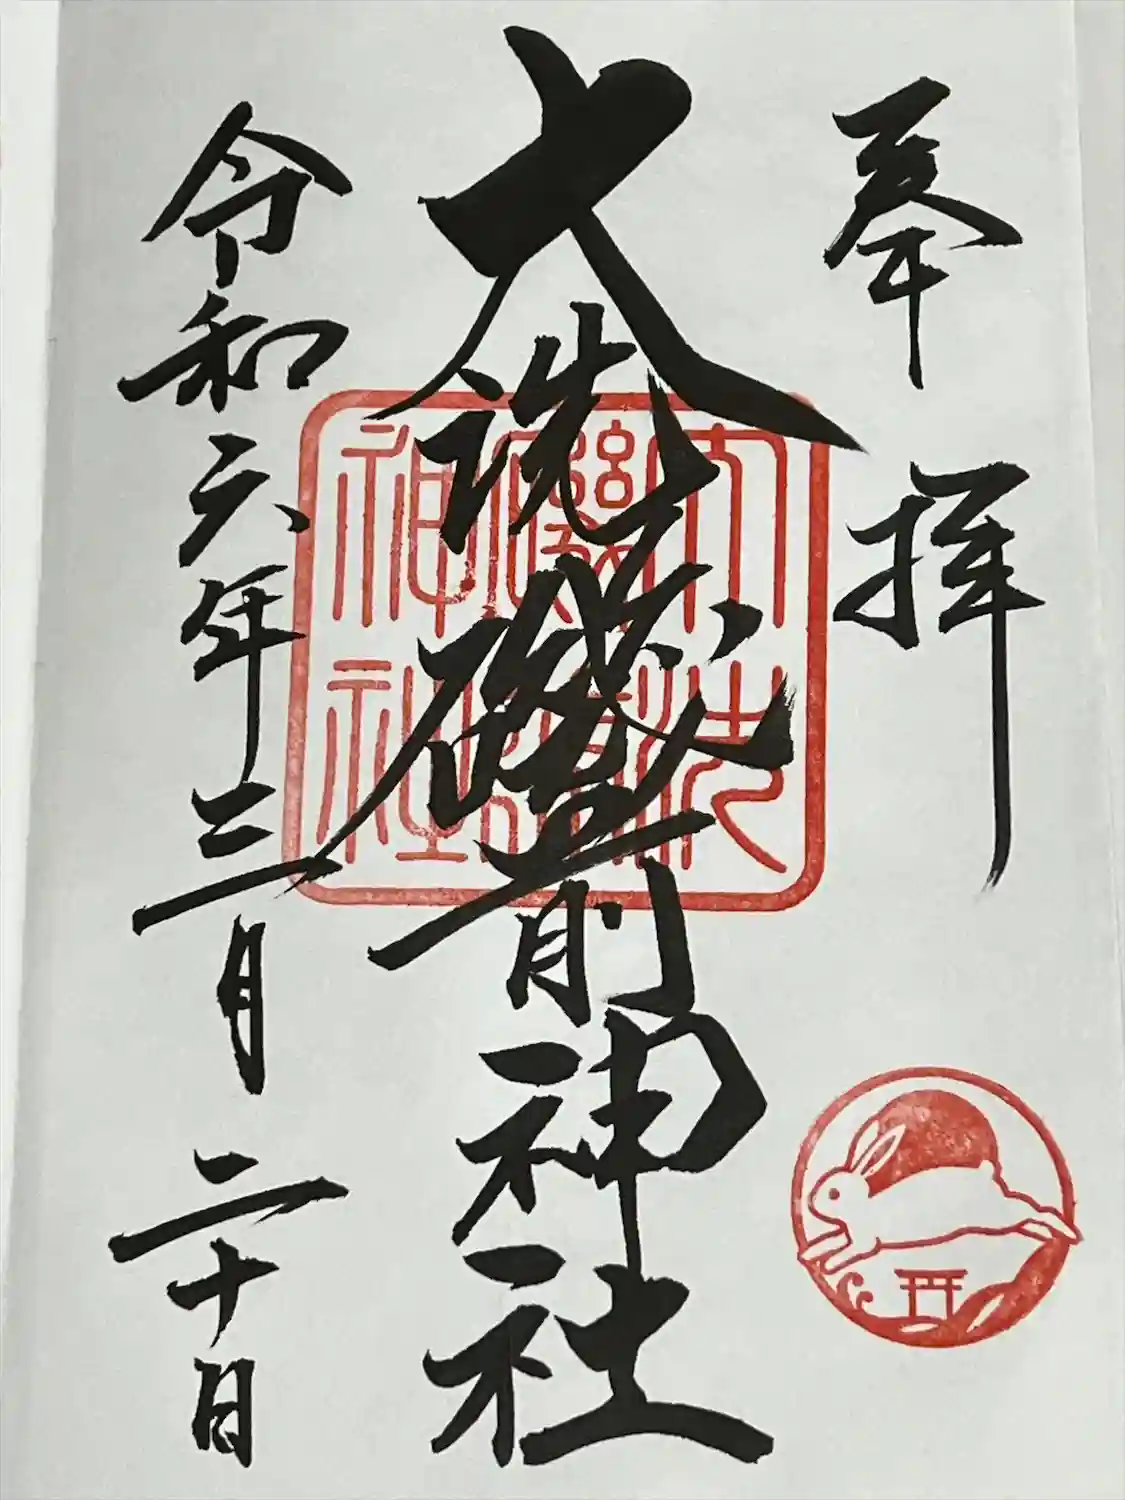 奉拝
大洗磯前神社
大洗磯前神社
令和六年三月二十日